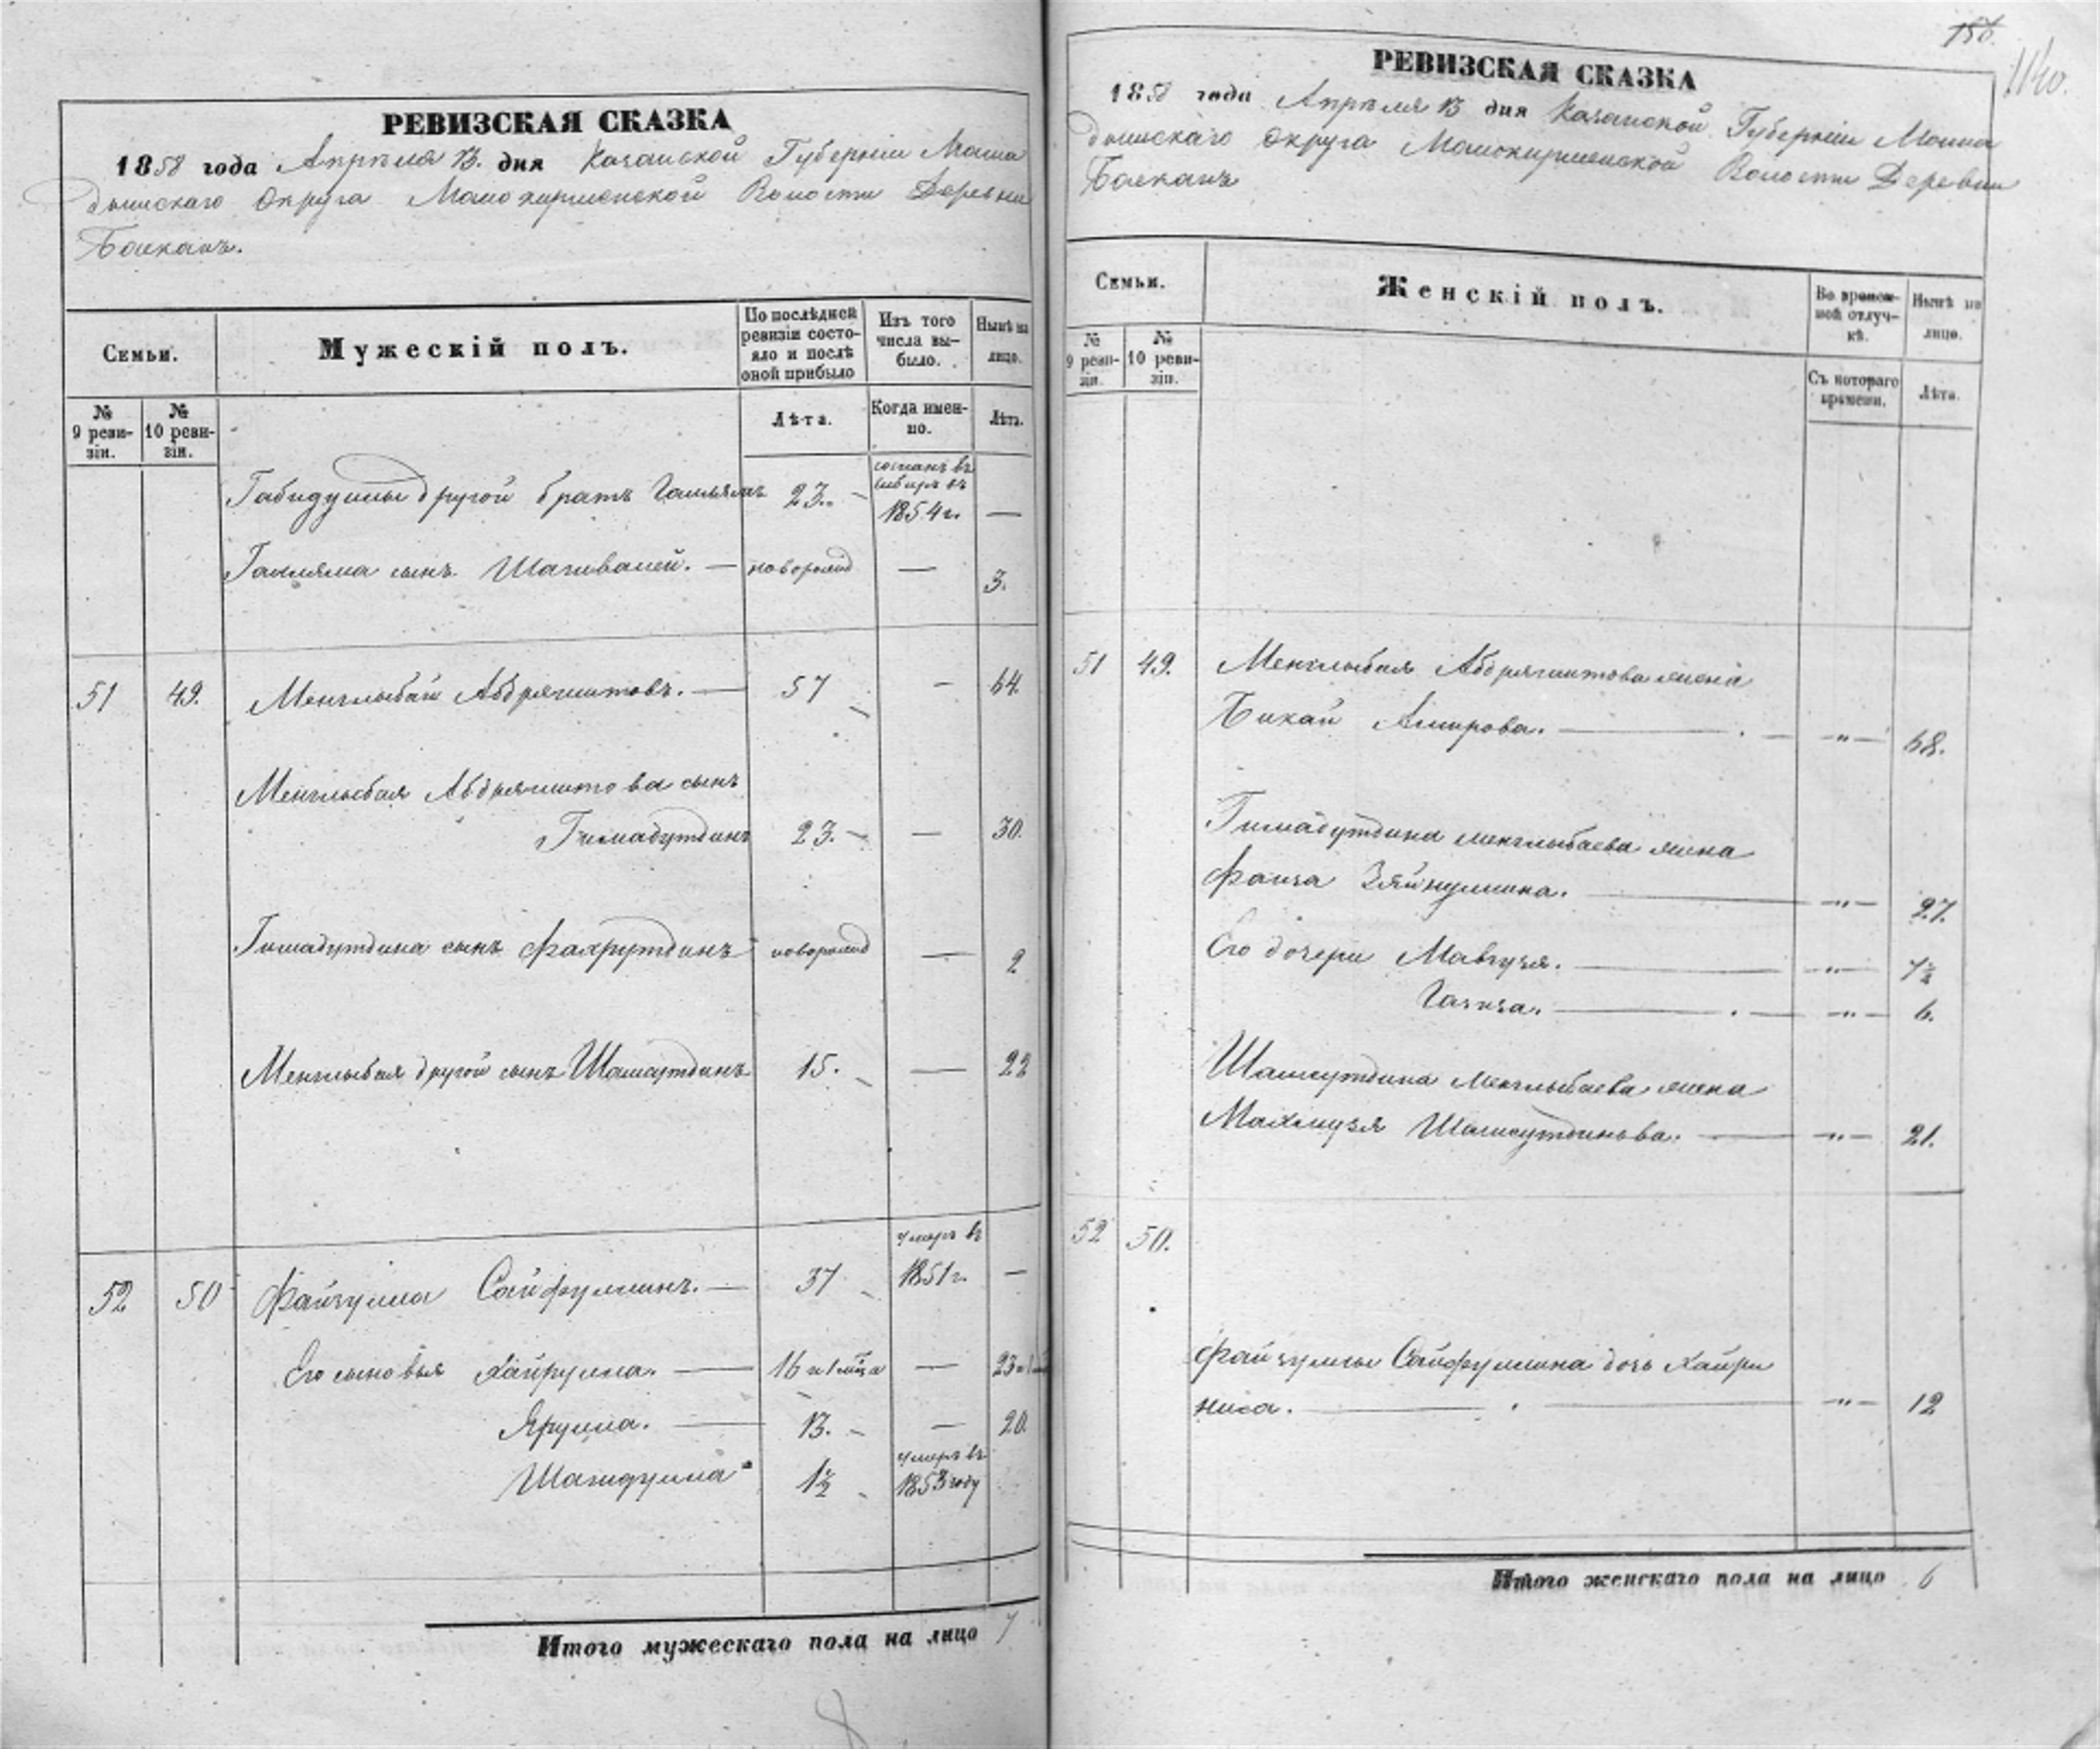 РЕВИЗСКАЯ СКАЗКА
1858 года Апреля 13. дня Казанской Губернии Мама
дышскаго Округа Малокирменской Волости Деревни
Баекань.
Семьи.
Мужескій полъ.
По послѣдней ревизіи состояло и послѣ оной прибыло
Изъ того числа выбыло.
Нынѣ на лицо.
№ 9 ревизіи.
№ 10 ревизіи.
Лѣта.
Когда именно.
Лѣта.
Габидуллы другой братъ 23. — 1854 г. —
сынъ Шагивалей. — новорожд — 3.
51 49. Менглыбай Абдряшитовъ. — 57 — 64.
Менглыбая Абдряшитова сынъ
Гимадутдинъ 23. — — 30.
Гимадутдина сынъ Фахрутдинъ новорожд — 2
Менглыбая другой сынъ Шамсутдинъ 15. — 22
умеръ въ
52 50 Файзулла Сайфуллинъ. — 37 1851 г. —
Его сыновья Хайрулла. — 16 —
Ярулла. — 13. — — 20.
умеръ въ
Шагидулла 1½ 1853 году
Итого мужескаго пола на лицо 7
156.
РЕВИЗСКАЯ СКАЗКА
1858 года Апреля 13 дня Казанской Губернии Мама
дышскаго Округа Малокирменской Волости Деревни
Баекань
Семьи.
Женскій полъ.
Во временной отлучкѣ.
Нынѣ на лицо.
№ 9 ревизіи.
№ 10 ревизіи.
Съ котораго времени.
Лѣта.
51 49. Менглыбая Абдряшитова жена
Бикай Амирова. — „ — 68.
Гимадутдина Менглыбаева жена
Фаиза Зяйнуллина. — „ — 27.
Его дочери — „ —
Газиза. — „ — 6.
Шамсутдина Менглыбаева жена
Шамсутдинова. — „ — 21.
52 50.
Файзуллы Сайфуллина дочь Хайри
ниса. — „ — 12
Итого женскаго пола на лицо 6